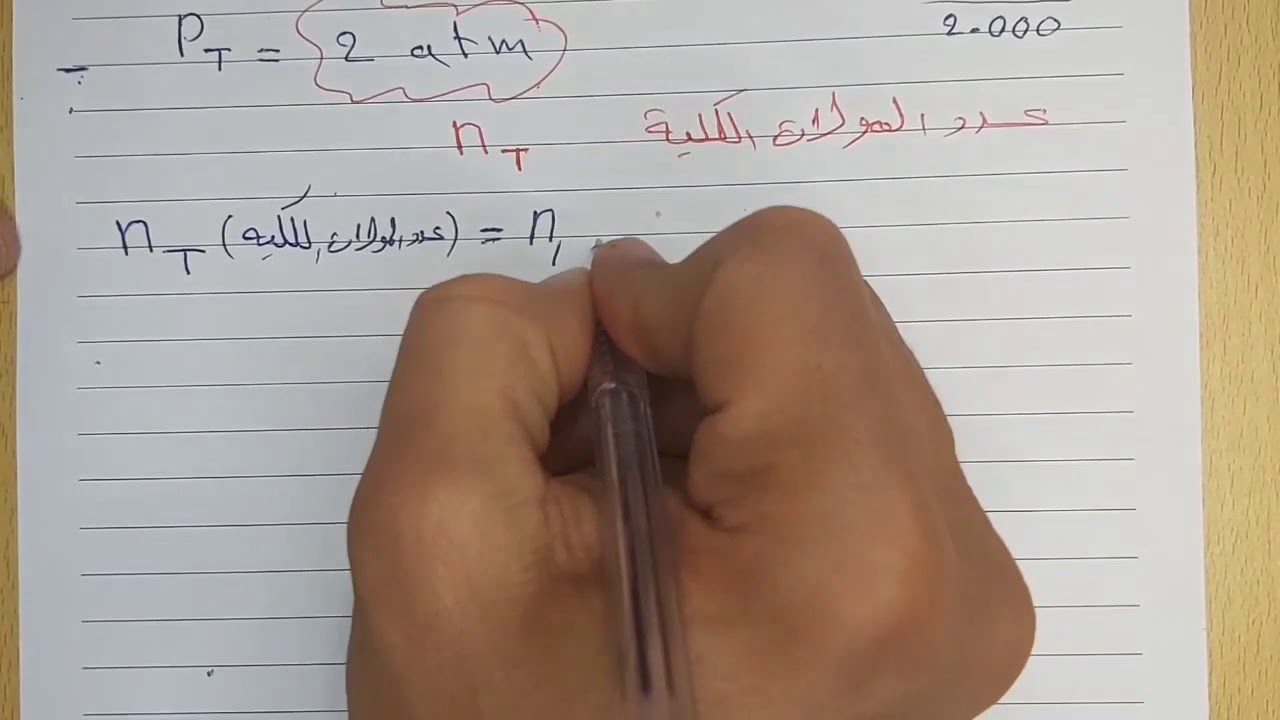 2.000
P_T = 2 atm
n_T عدد المولات الكلية
n_T (عدد المولات الكلية) = n₁